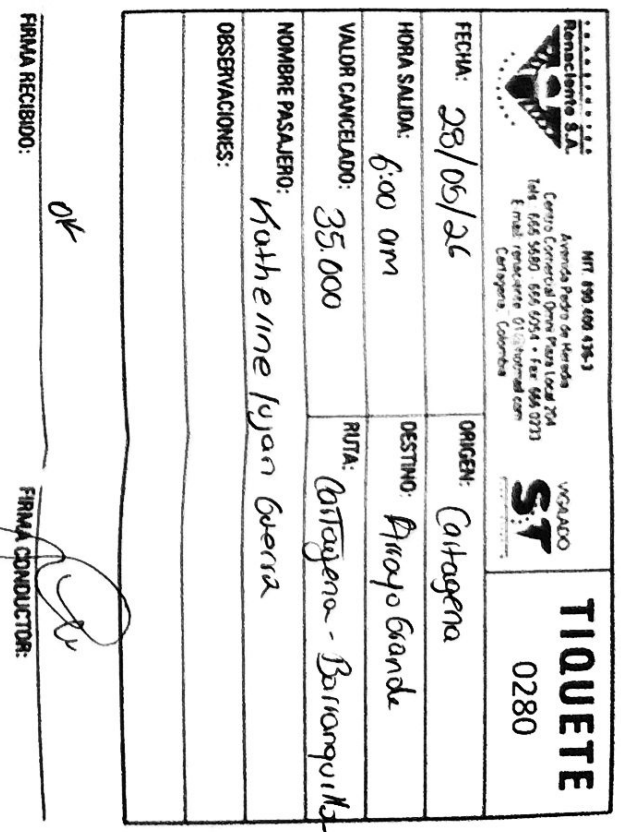 Renaciente S.A.
NIT. 890.400 436-3
Avenida Pedro de Heredia
Centro Comercial Omni Plaza Local 204
Tels.: 665 5680 - 665 6054 • Fax: 666 0233
E-mail: renaciente_01@hotmail.com
Cartagena, Colombia
VIGILADO
ST
TIQUETE
0280
FECHA: 28/05/26
ORIGEN: Cartagena
HORA SALIDA: 6:00 am
DESTINO: Arroyo Grande
VALOR CANCELADO: 35.000
RUTA: Cartagena - Barranquilla
NOMBRE PASAJERO: Katherine lujan Guerra
OBSERVACIONES:
OK
FIRMA RECIBIDO:
FIRMA CONDUCTOR: